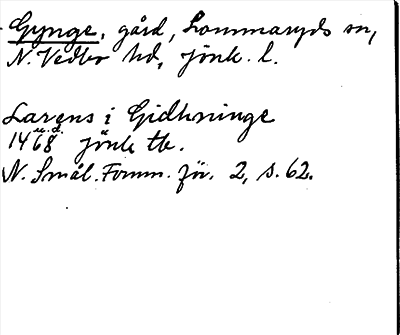 Gynge, gård, Lommaryds sn,
N. Vedbo hd, jönk. l.
Larens i Gidhninge
u.d.
1468 jönk tb.
N. Smål. Fornm. för. 2, s. 62.